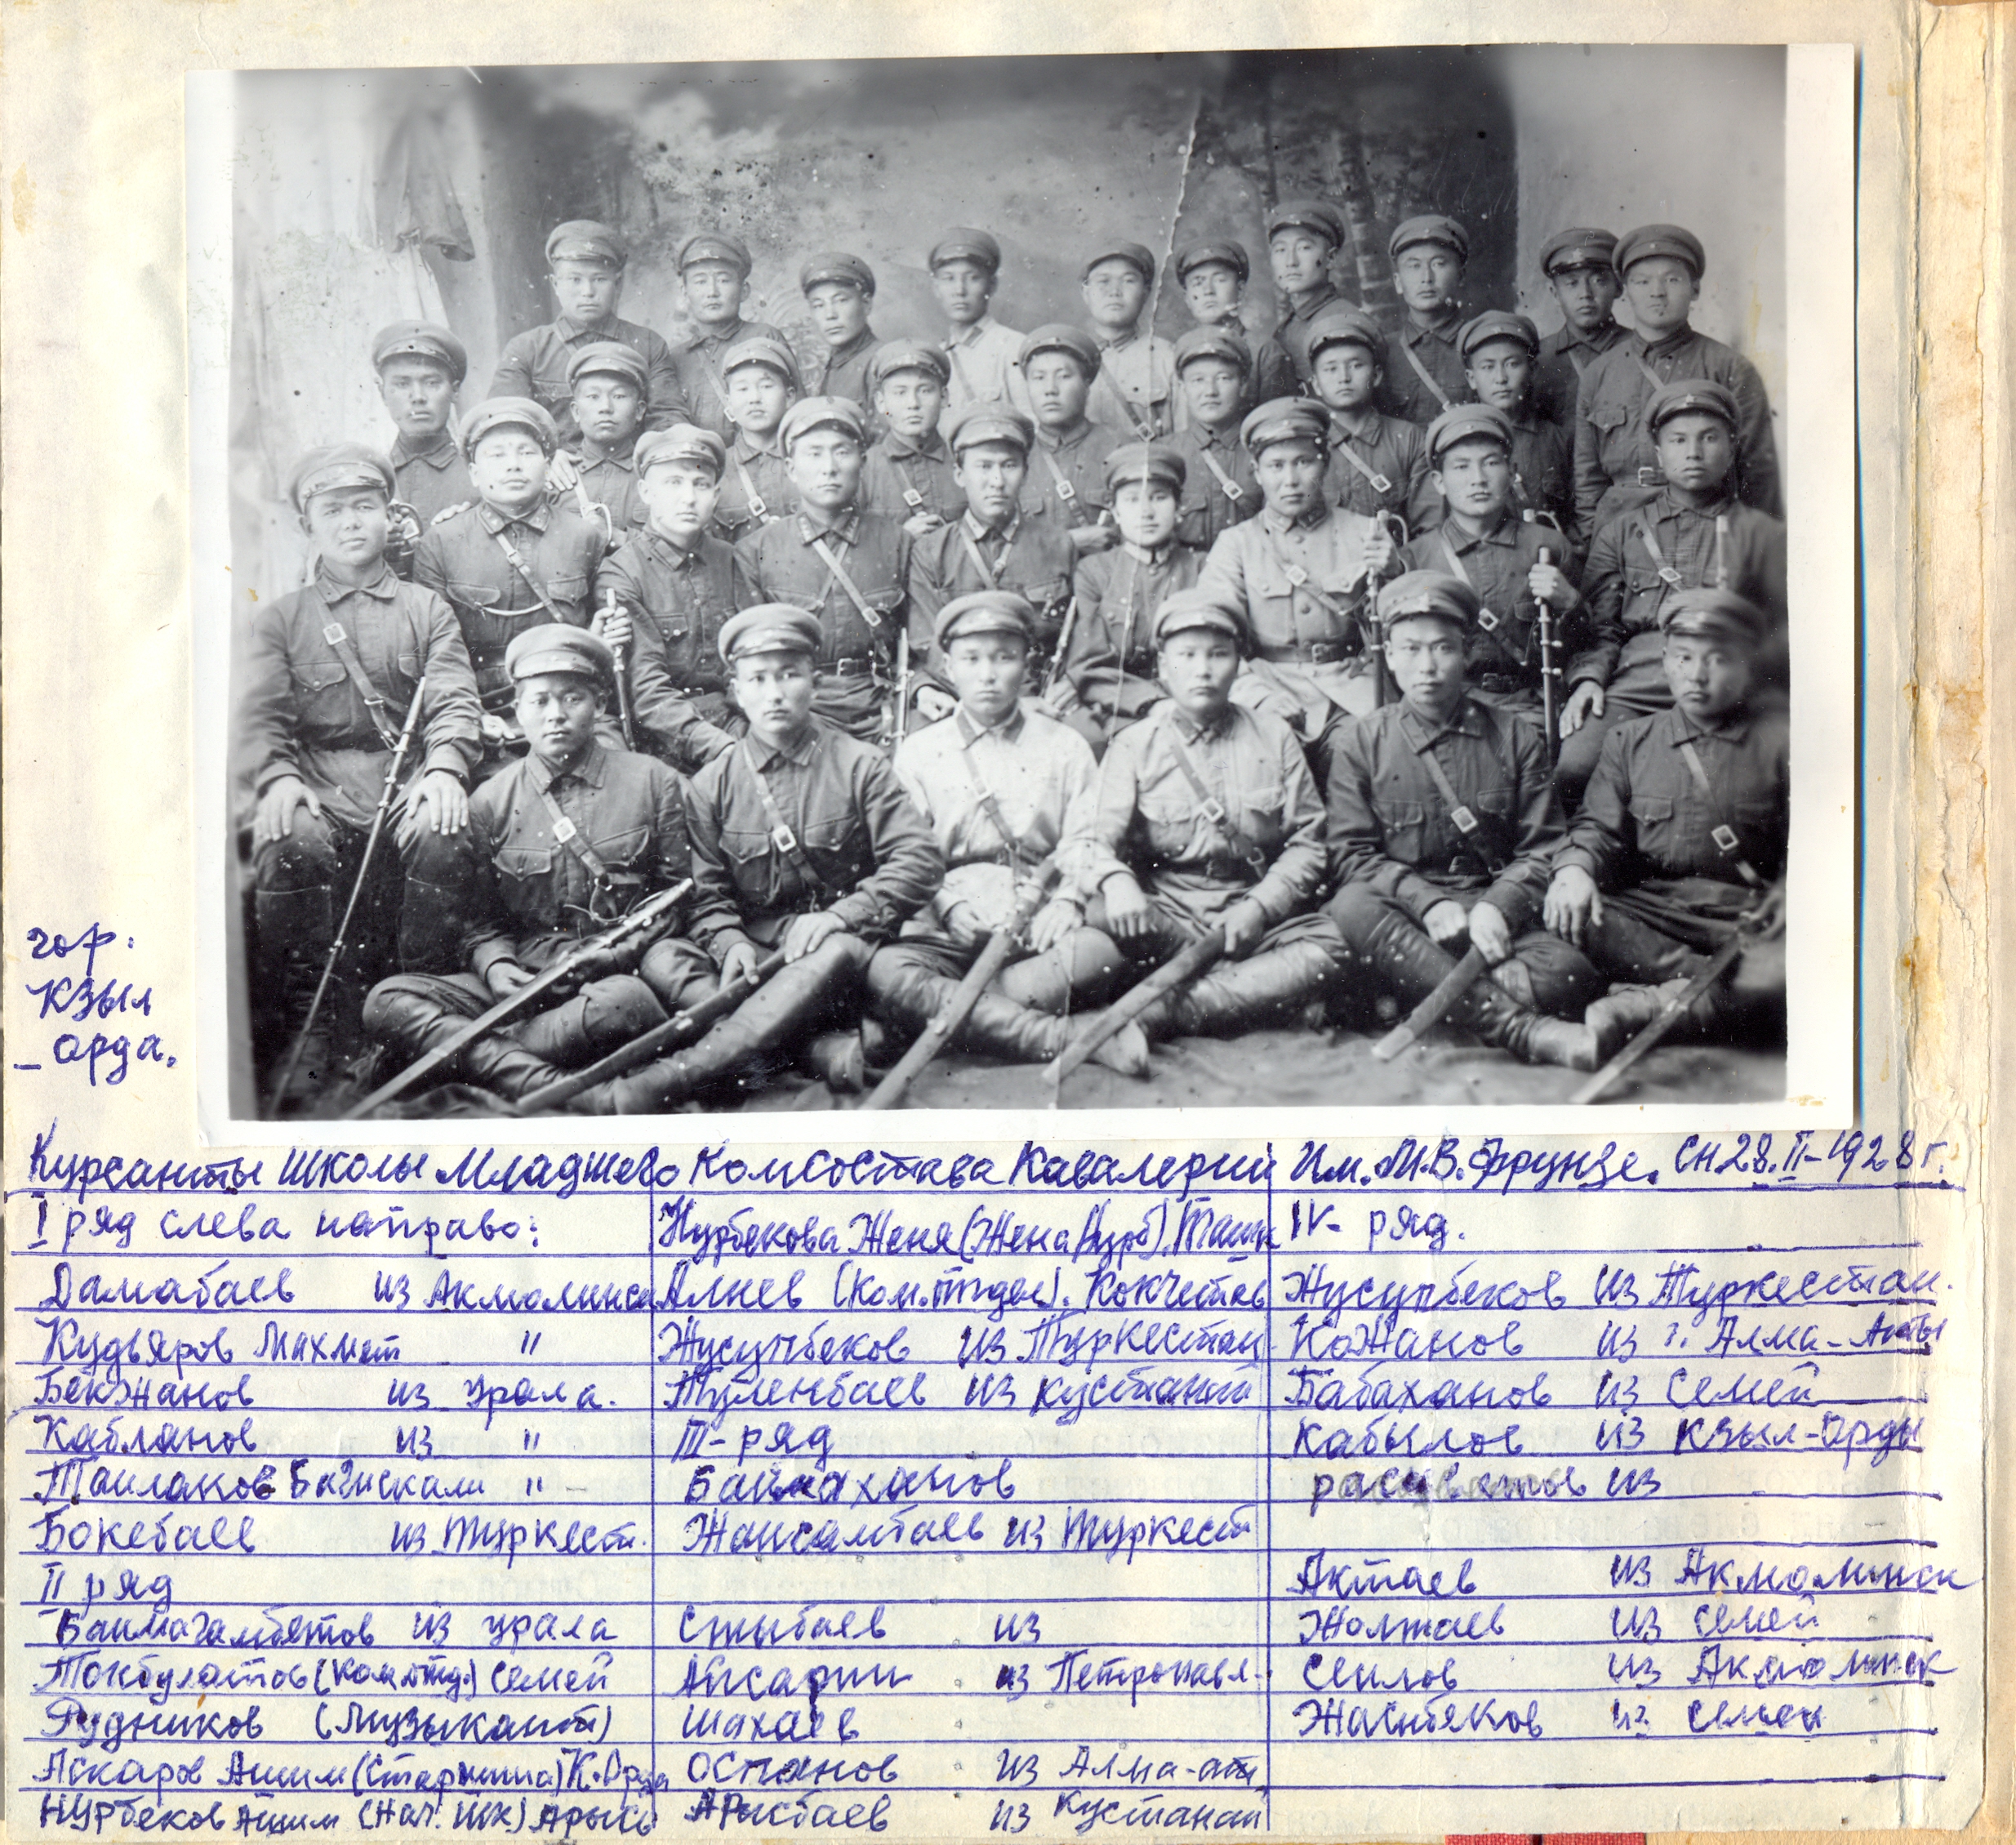 гор.
Кзыл
_ орда.
Курсанты школы Младшего Комсостава Кавалерий Им. М.В. Фрунзе. сн 28.II-1928 г.
I ряд слева направо:
Дамабаев из Акмолинск
Кудьяров Махмет "
Бекжанов из Урала.
Кабланов из "
Таилаков "
Бокебаев из Туркест.
II ряд
Баимагамбетов из Урала
Токбулатов (Ком.отд.) Семей
Рудников (Музыкант)
Аскаров Ашим (Старшина) К.Орда
Нурбеков Ашим (Нач. шк.) Арысь
Нурбекова Женя (Жена Нурб). Ташк
Алиев (Ком.отдел). Кокчетав
Жусупбеков из Туркестан.
Туленбаев из Кустанай
III-ряд
Баймаханов
Жансамбаев из Туркест
Стыбаев из
Айсарин из Петропавл.
Шахаев
Оспанов из Алма-ат
Арысбаев из Кустанай
IV- ряд.
Жусупбеков из Туркестан.
Кожанов из г. Алма-Аты
Бабаханов из Семей
Кабылов из Кзыл-Орды
из
Актаев из Акмолинск
Жолжаев из Семей
Сеилов из Акмолинск
Жасыбеков из Семей